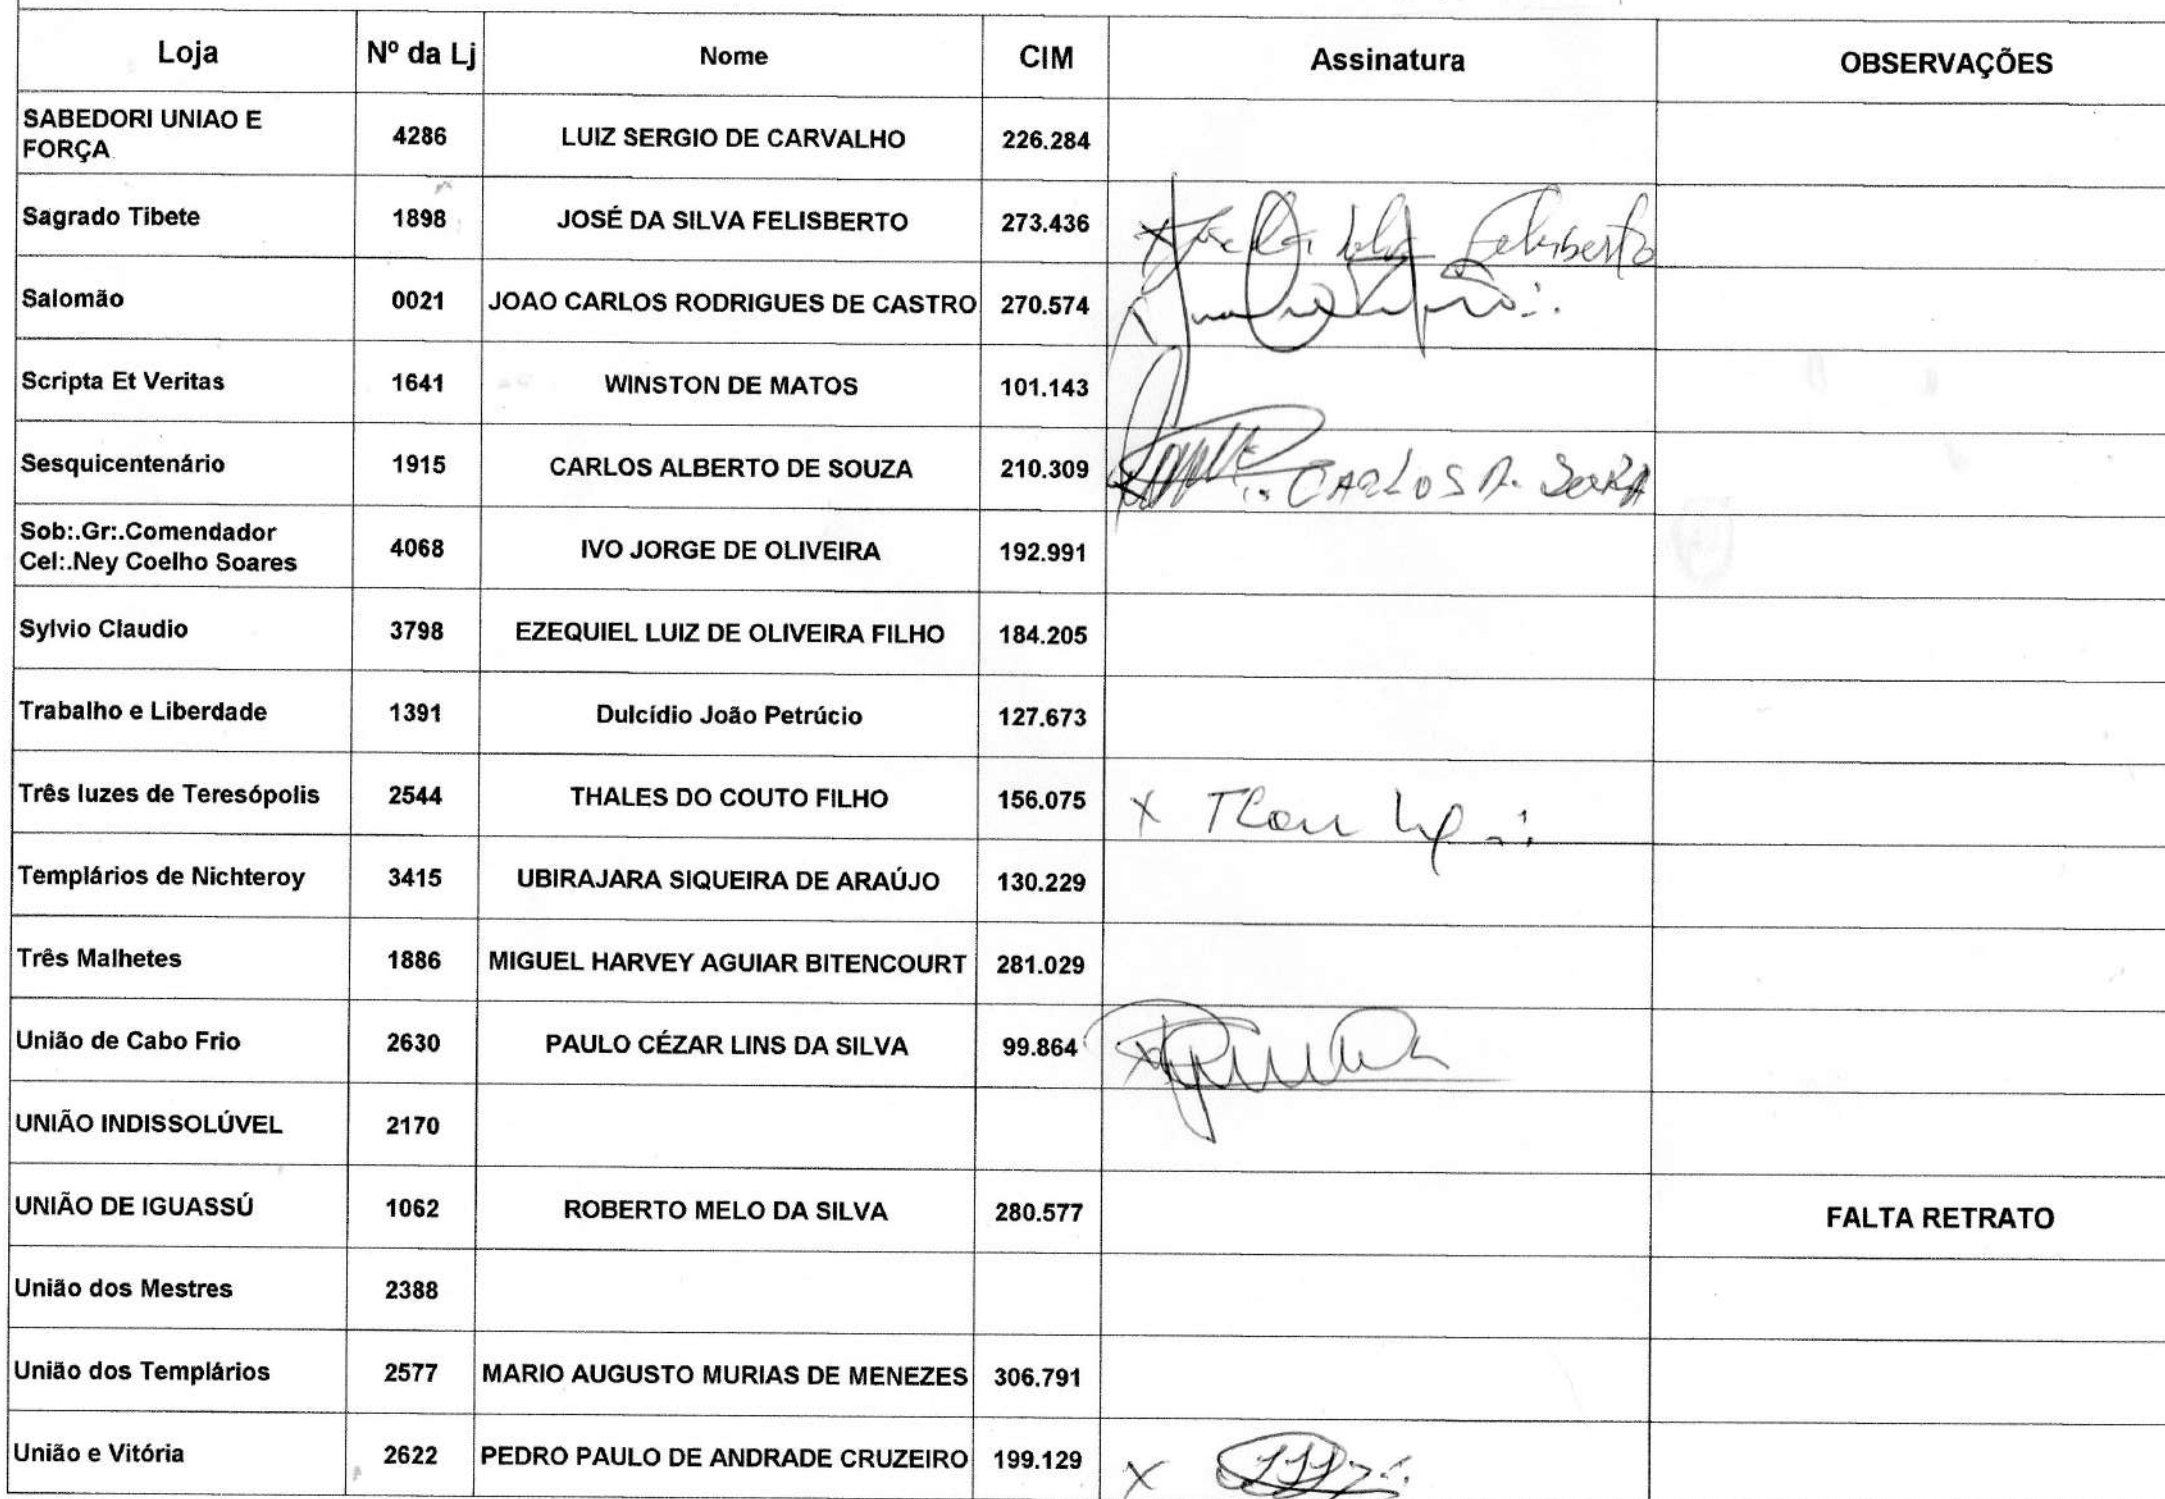 Loja Nº da Lj Nome CIM Assinatura OBSERVAÇÕES
SABEDORI UNIAO E
FORÇA 4286 LUIZ SERGIO DE CARVALHO 226.284
Sagrado Tibete 1898 JOSÉ DA SILVA FELISBERTO 273.436 Felisberto
Salomão 0021 JOAO CARLOS RODRIGUES DE CASTRO 270.574
Scripta Et Veritas 1641 WINSTON DE MATOS 101.143
Sesquicentenário 1915 CARLOS ALBERTO DE SOUZA 210.309 CARLOS A. SOUZA
Sob:.Gr:.Comendador
Cel:.Ney Coelho Soares 4068 IVO JORGE DE OLIVEIRA 192.991
Sylvio Claudio 3798 EZEQUIEL LUIZ DE OLIVEIRA FILHO 184.205
Trabalho e Liberdade 1391 Dulcídio João Petrúcio 127.673
Três luzes de Teresópolis 2544 THALES DO COUTO FILHO 156.075 X
Templários de Nichteroy 3415 UBIRAJARA SIQUEIRA DE ARAÚJO 130.229
Três Malhetes 1886 MIGUEL HARVEY AGUIAR BITENCOURT 281.029
União de Cabo Frio 2630 PAULO CÉZAR LINS DA SILVA 99.864
UNIÃO INDISSOLÚVEL 2170
UNIÃO DE IGUASSÚ 1062 ROBERTO MELO DA SILVA 280.577 FALTA RETRATO
União dos Mestres 2388
União dos Templários 2577 MARIO AUGUSTO MURIAS DE MENEZES 306.791
União e Vitória 2622 PEDRO PAULO DE ANDRADE CRUZEIRO 199.129 X